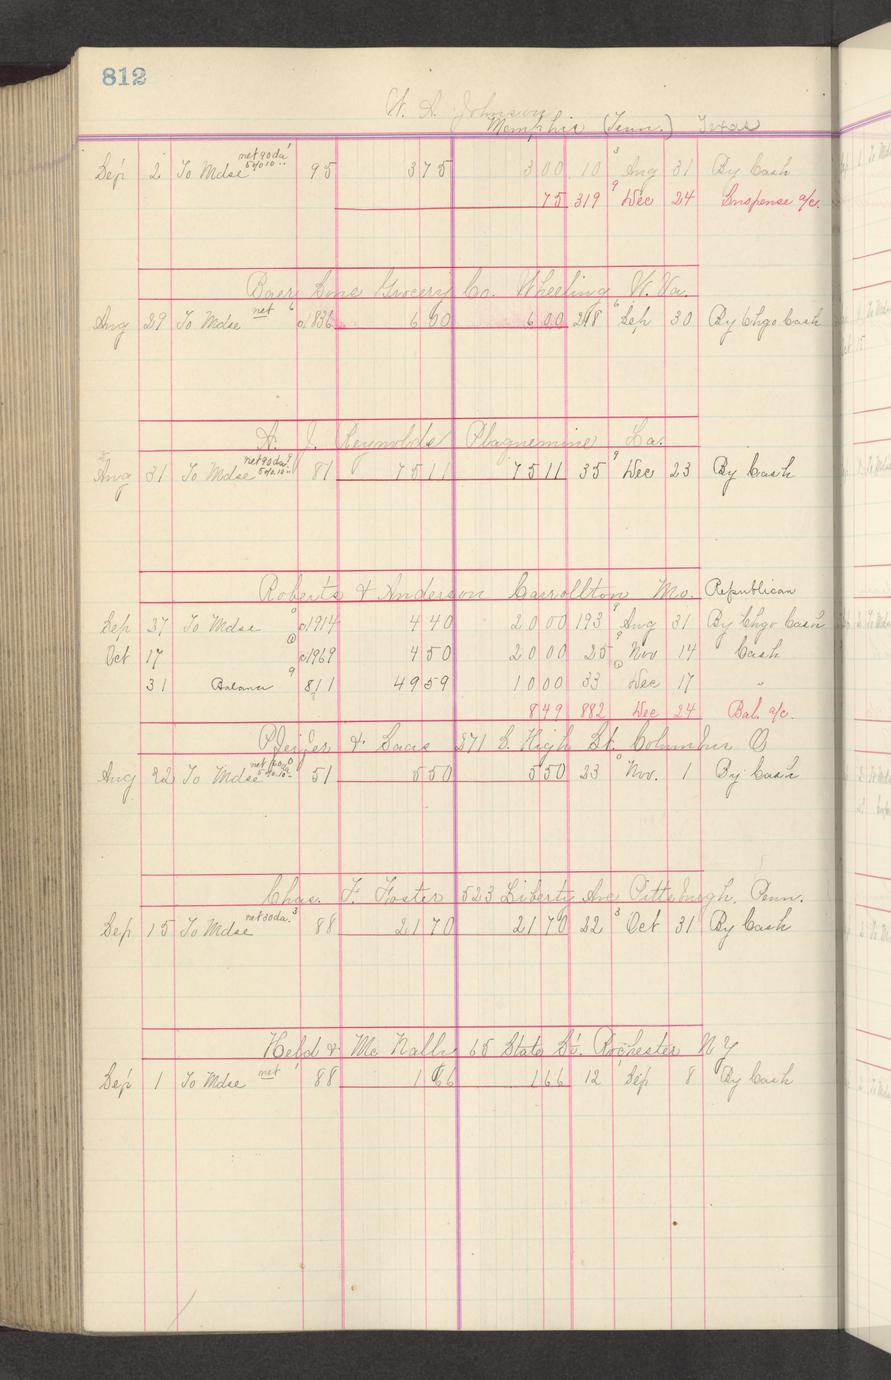 812
W. A. Johnson
Memphis (Tenn.) Texas
Sep 2 To Mdse net 90 da 5% 10 " 95 375 300 10 3 Aug 31 By Cash
75 319 9 Dec 24 Suspense a/c.
Baer Sons Grocery Co. Wheeling W. Va.
Aug 29 To Mdse net 6 c1836 600 600 248 6 Sep 30 By Chgo Cash
A. J. Reynolds Plaquemine La.
Aug 31 To Mdse net 90 da. 5% 10 " 9 81 7511 7511 35 9 Dec 23 By Cash
Roberts & Anderson Carrollton Mo. Republican
Sep 27 To Mdse c1914 440 2000 193 9 Aug 31 By Chgo Cash
Oct 17 c1969 450 2000 25 9 Nov 14 Cash
31 Balance 9 811 4959 1000 33 Dec 17 "
849 882 Dec 24 Bal. a/c.
Pfeifer & Sacs 271 S. High St. Columbus O
Aug 22 To Mdse net 60 da 5% 10 " 51 550 550 23 Nov. 1 By Cash
Chas. F. Foster 523 Liberty Ave Pittsburgh. Penn.
Sep 15 To Mdse net 30 da. 3 88 2170 2170 22 3 Oct 31 By Cash
Held & Mc Nally 65 State St. Rochester N Y
Sep 1 To Mdse net 88 166 166 12 Sep 8 By Cash